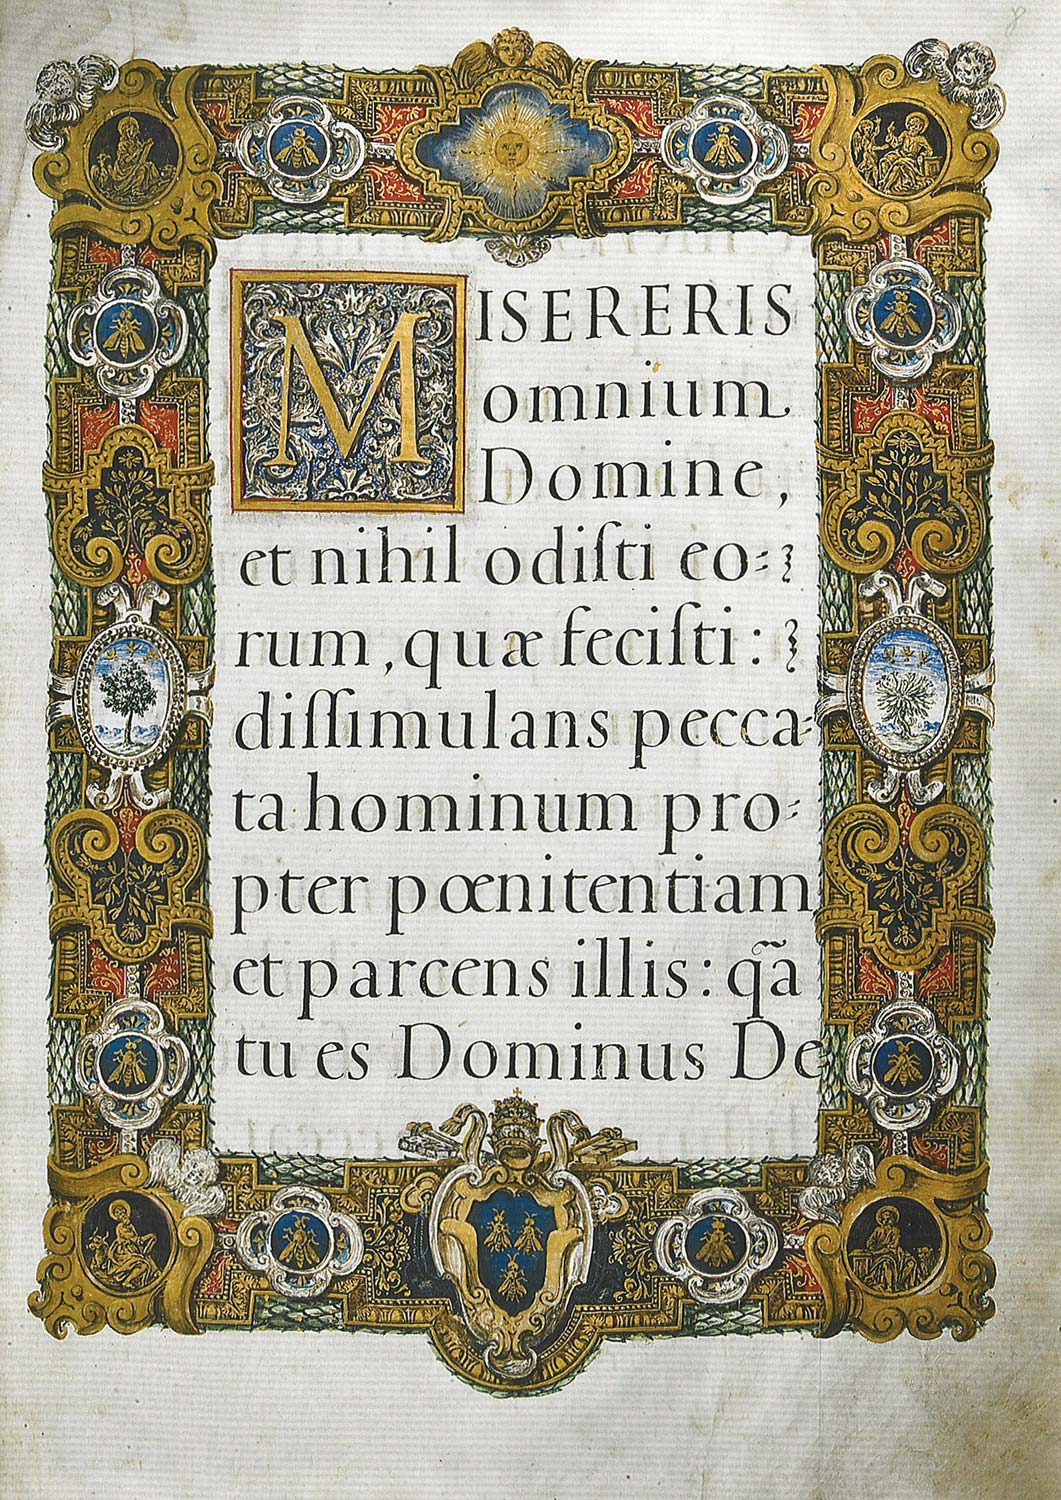 MISERERIS
omnium
Domine,
et nihil odiſti eo=
rum, quæ feciſti:
diſſimulans pecca=
ta hominum pro=
pter pœnitentiam
et parcens illis: qã
tu es Dominus De